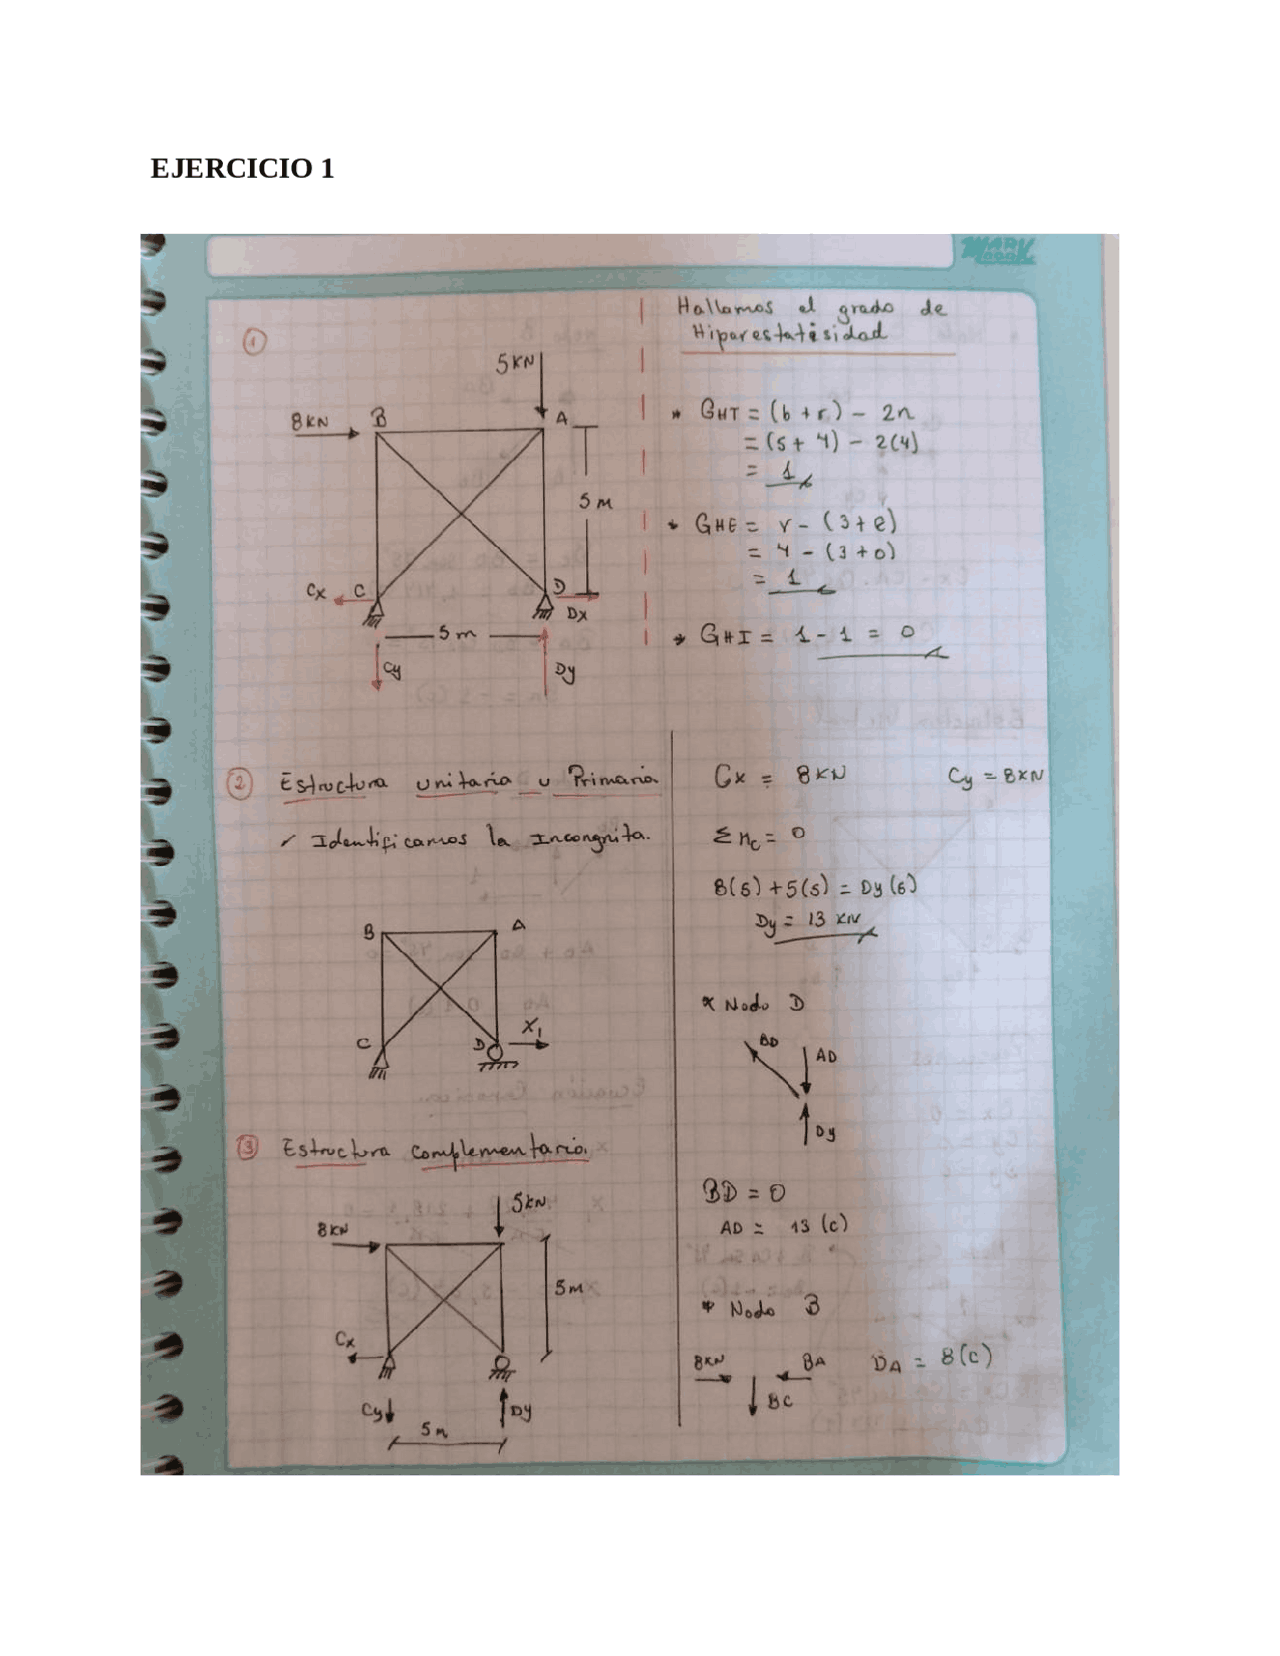 EJERCICIO 1
Hallamos el grado de
Hiperestatisidad
1
5KN
8KN
B
A
5 m
Cx
C
D
Dx
5m
Cy
Dy
* GHT = (b + r) - 2n
= (5 + 4) - 2(4)
= 1
* GHE = r - (3 + e)
= 4 - (3 + 0)
= 1
* GHI = 1 - 1 = 0
2 Estructura unitaria u Primaria
✓ Identificamos la Incongnita.
B
A
C
D
X1
3 Estructura complementaria
5KN
8KN
5m
Cx
Cy
Dy
5m
Cx = 8KN
Cy = 8KN
Σ Mc = 0
8(5) + 5(5) = Dy (5)
Dy = 13 KN
* Nodo D
BD
AD
Dy
BD = 0
AD = 13 (c)
* Nodo B
8KN
BA
BC
BA = 8(c)